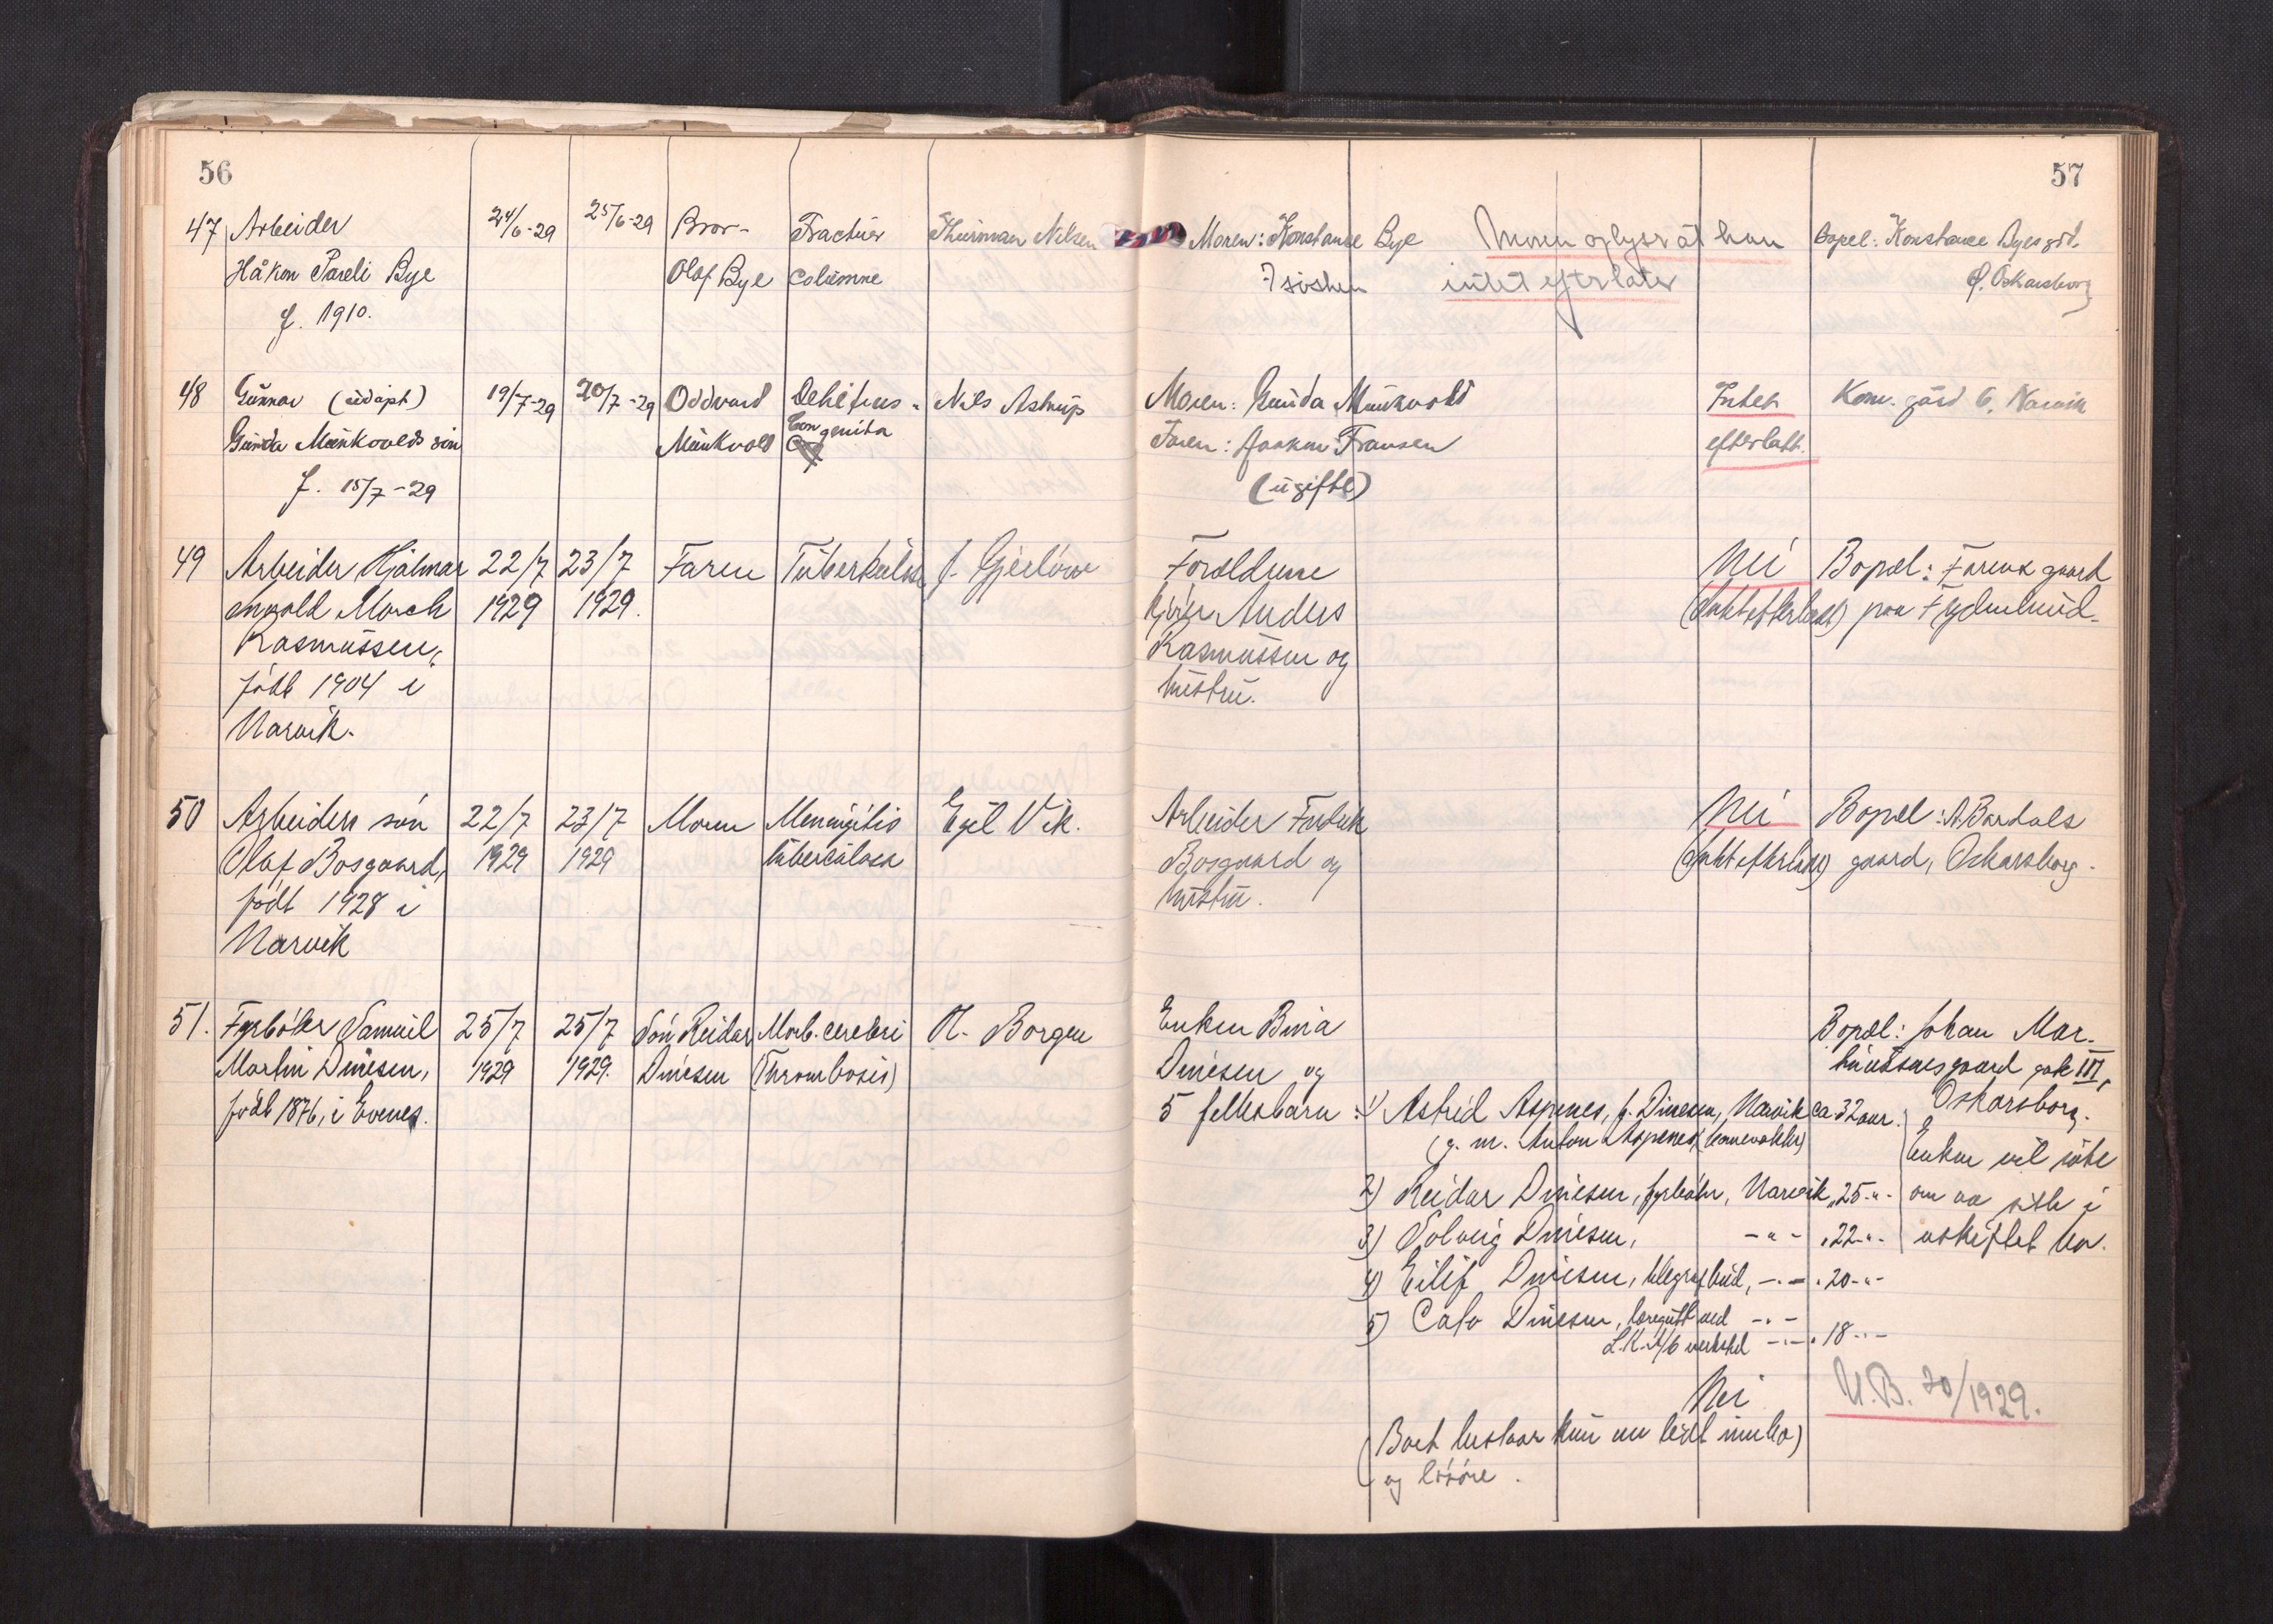 56
57
47 Arbeider 24/6-29 25/6-29 Bror- Fractur Thurman Nilsen Moren: Konstanse Bye Moren oplyser at han Bopel: Konstanse Byes gd.
Håkon Pareli Bye Olaf Bye columne 7 søsken intet efterlater Ø. Oskarsborg
f. 1910.
48 Gunnar (udøpt) 19/7-29 20/7-29 Oddvard Debilitas Nils Astrup Moren: Gunda Munkvold Intet Kom. gård 6, Narvik
Gunda Munkvolds søn Munkvold Congenita Faren: Haakon Fransen efterlatt.
f. 15/7-29 (ugifte)
49 Arbeider Hjalmar 22/7 23/7 Faren Tuberkulose J. Gjerløw Foreldrene Nei Bopel: Farens gaard
Morch 1929 1929. Kjører Anders (Intet efterladt) paa Fydenlund.
Rasmussen, Rasmussen og
født 1904 i hustru.
Narvik.
50 Arbeiders søn 22/7 23/7 Moren Meningitis Egil Vik. Arbeider Fredrik Nei Bopel: A. Bardals
Olaf Bosgaard, 1929 1929 tuberculosa Bosgaard og (Intet efterladt) gaard, Oskarsborg.
født 1928 i hustru.
Narvik
51. Fyrbøter Samuel 25/7 25/7 Søn Reidar Morb. cerebri H. Borgen Enken Bina Bopel: Johan Mar-
Martin Dinesen, 1929 1929. Dinesen (Thrombosis) Dinesen og gaard gate III,
født 1876, i Evenes. 5 fellesbarn: 1) Astrid Aspenes, f. Dinesen, Narvik ca 32 aar. Oskarsborg.
(g. m. Anton Aspenes, banevokter) Enken vil søke
2) Reidar Dinesen, fyrbøter, Narvik, 25-"- om aa sitte i
3) Solveig Dinesen, -"- , 22-"- uskiftet bo.
4) Eilif Dinesen, telegrafbud, -"- , 20-"-
5) Cato Dinesen, læregutt ved -"-
L.K.A/B verksted -"- , 18-"-
Nei U.B. 70/1929.
(Boet bestaar kun en leidt innbo)
og løsøre.